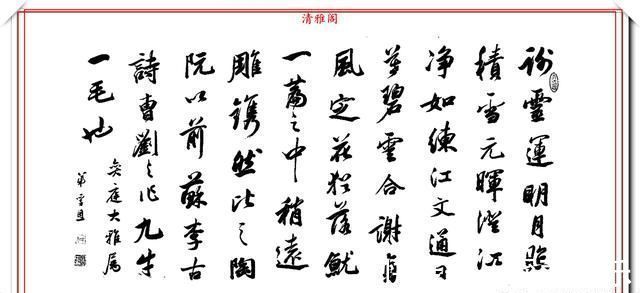 清雅阁
謝靈運明月照
積雪元暉澄江
淨如練江文通日
暮碧雲合謝貞
風定花猶落就
一篇之中稍遠
雕鐫然比之陶
阮以前蘇李古
詩曹劉之作九牛
一毛也
庭大雅属
弟